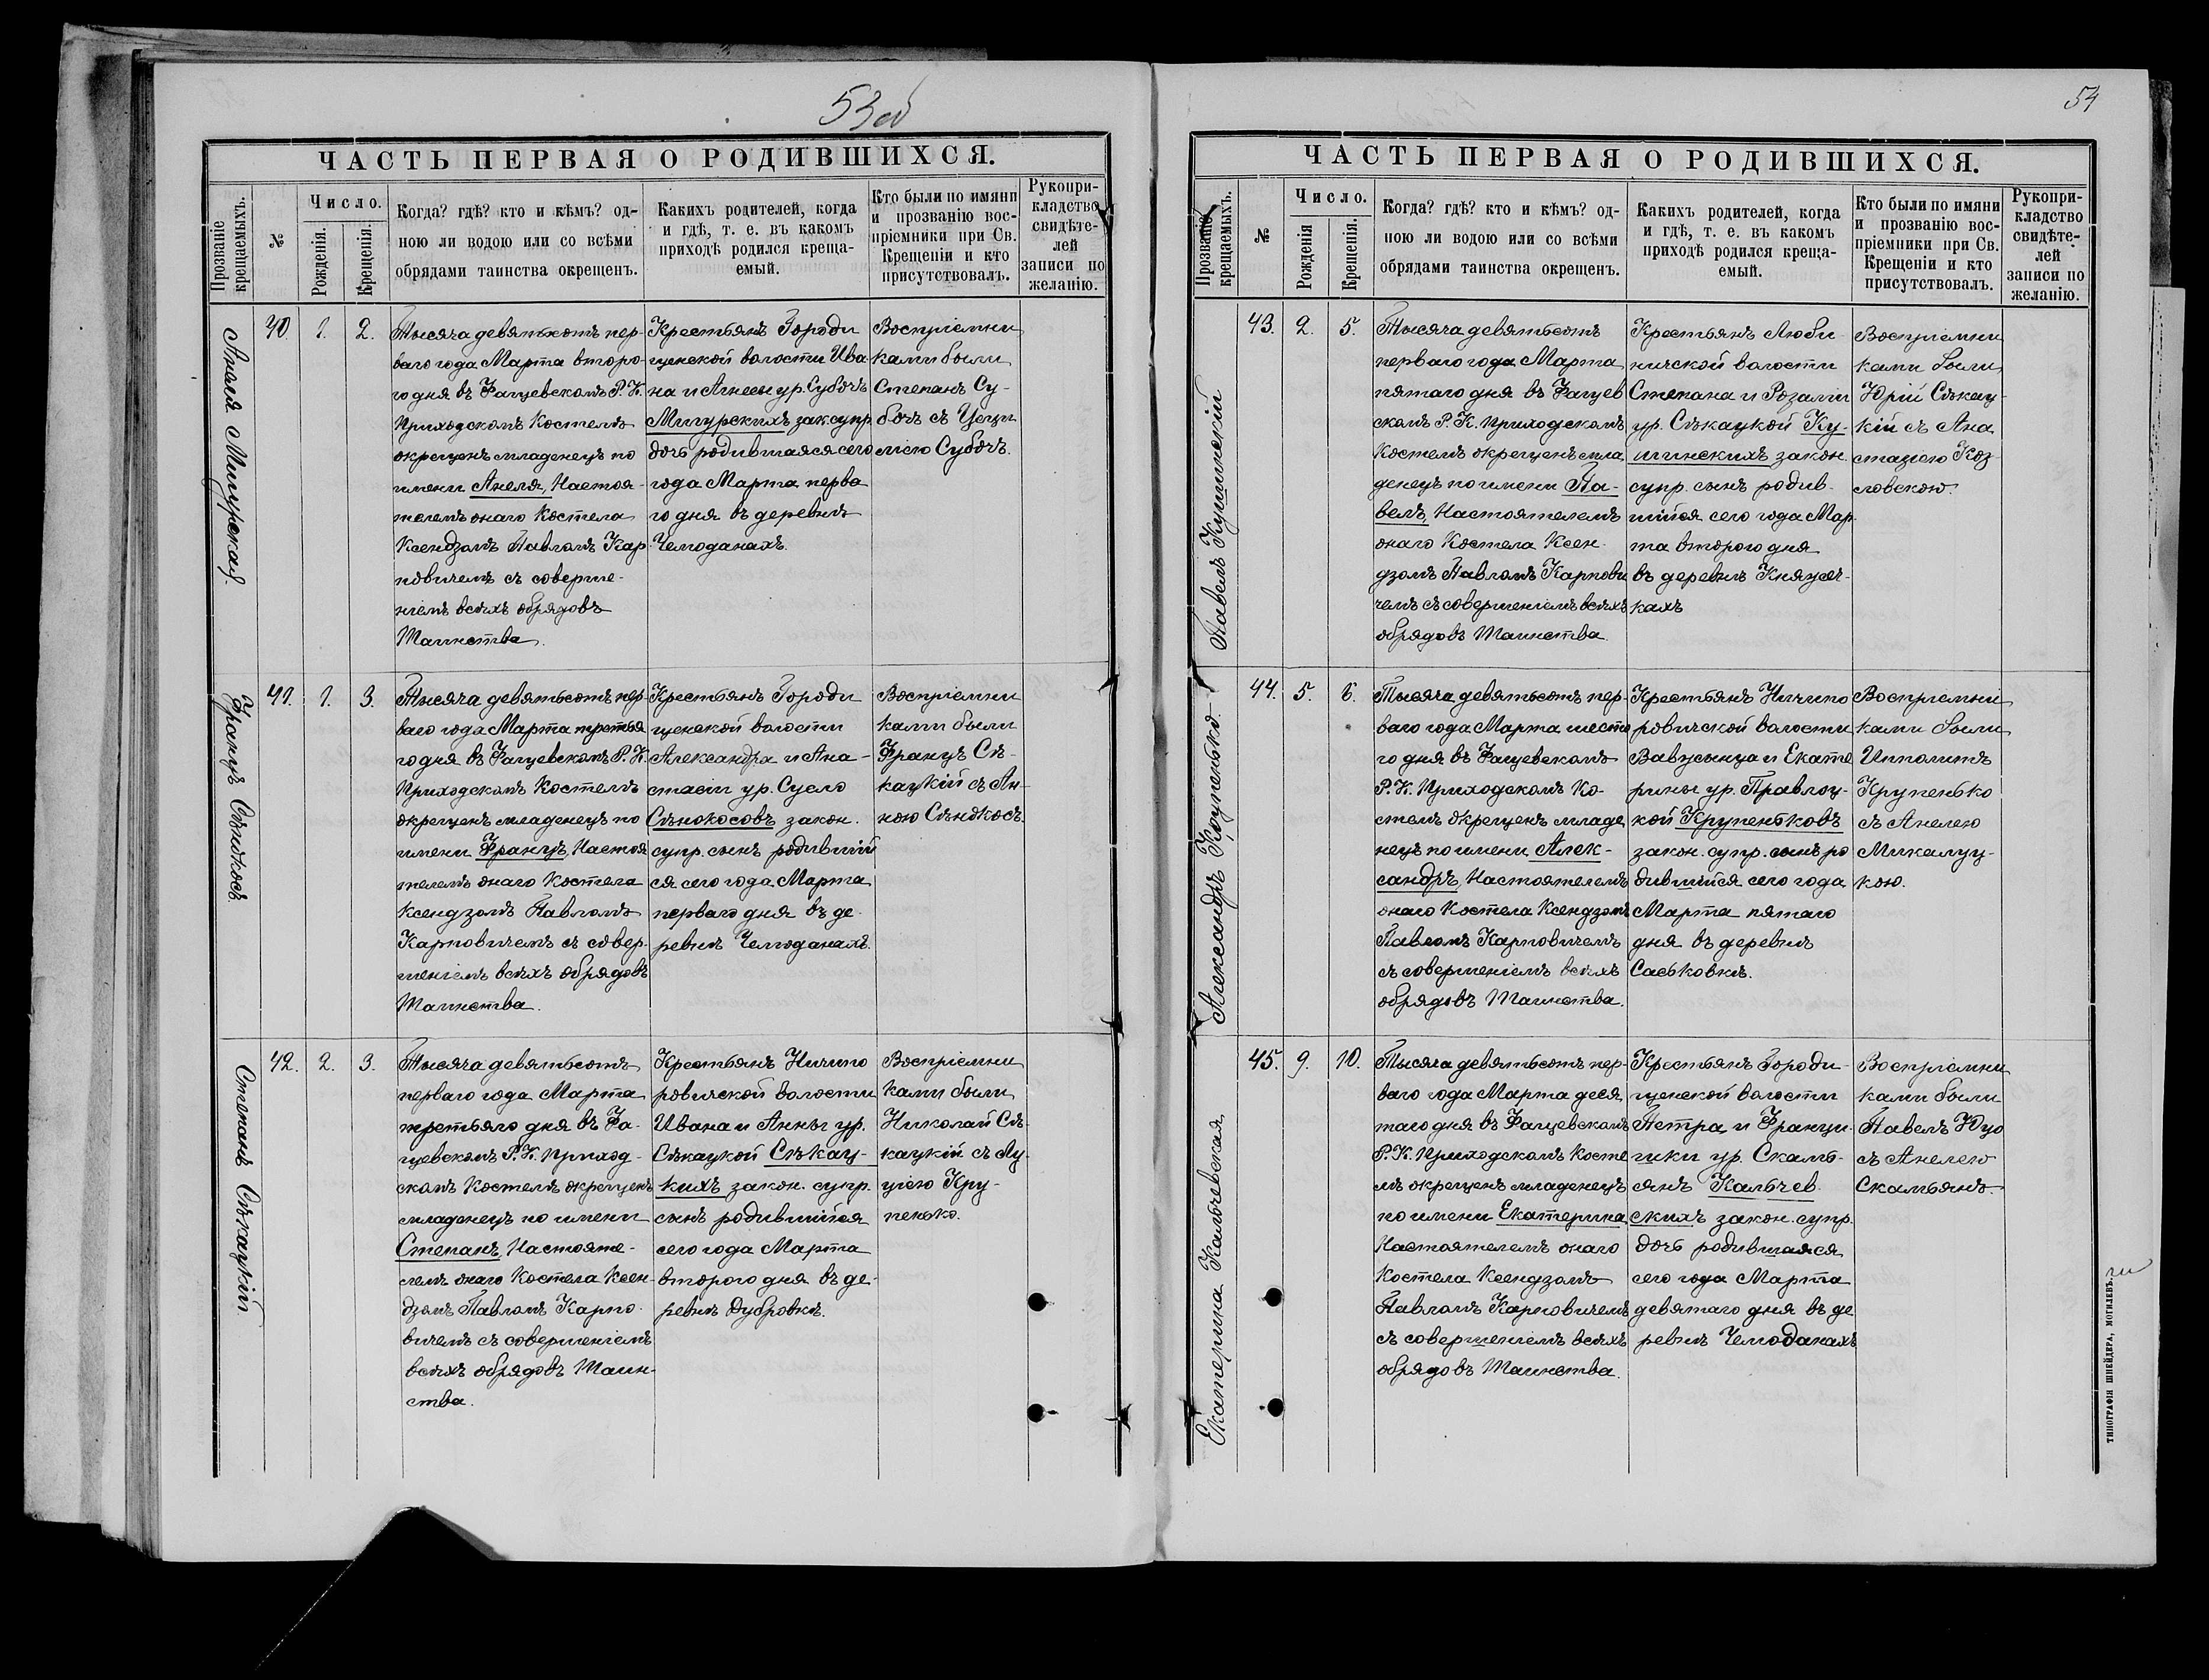 53 об
ЧАСТЬ ПЕРВАЯ О РОДИВШИХСЯ.
Прозваніе крещаемыхъ.
№
Число.
Рожденія.
Крещенія.
Когда? гдѣ? кто и кѣмъ? од-
ною ли водою или со всѣми
обрядами таинства окрещенъ.
Какихъ родителей, когда
и гдѣ, т. е. въ какомъ
приходѣ родился креща-
емый.
Кто были по имяни
и прозванію вос-
пріемники при Св.
Крещеніи и кто
присутствовалъ.
Рукопри-
кладство
свидѣте-
лей
записи по
желанію.
Анеля Мигурская.
40.
1.
2.
Тысяча девятьсотъ пер-
ваго года Марта второ-
го дня въ Фащевскомъ Р. К.
Приходскомъ Костелѣ
окрещенъ младенецъ по
имени Анеля, Настоя-
телемъ онаго Костела
Ксендзомъ Павломъ Кар-
повичемъ съ соверше-
ніемъ всѣхъ обрядовъ
Таинства.
Крестьянъ Городи
щенской волости Ива
на и Агнесы ур. Субочъ
Мигурскихъ зак. супр.
дочь родившаяся сего
года Марта перва
го дня въ деревнѣ
Чемоданахъ.
Воспріемни
ками были
Степанъ Су-
бочъ съ Цеци
ліею Субочъ.
Францъ Сѣнокосъ.
41.
1.
3.
Тысяча девятьсотъ пер-
ваго года Марта третья
го дня въ Фащевскомъ Р. К.
Приходскомъ Костелѣ
окрещенъ младенецъ по
имени Францъ, Настоя
телемъ онаго Костела
Ксендзомъ Павломъ
Карповичемъ съ совер-
шеніемъ всѣхъ обрядовъ
Таинства.
Крестьянъ Городи
щенской волости
Александра и Ана-
стасіи ур. Сусло
Сѣнокосовъ закон.
супр. сынъ родившій
ся сего года Марта
перваго дня въ де-
ревнѣ Чемоданахъ.
Воспріемни
ками были
Францъ Сѣ-
кацкій съ Ан-
ною Сѣнокосъ.
Степанъ Сѣкацкій.
42.
2.
3.
Тысяча девятьсотъ
перваго года Марта
третьяго дня въ Фа-
щевскомъ Р. К. Приход-
скомъ Костелѣ окрещенъ
младенецъ по имени
Степанъ, Настояте-
лемъ онаго Костела Ксен-
дзомъ Павломъ Карпо-
вичемъ съ совершеніемъ
всѣхъ обрядовъ Таин-
ства.
Крестьянъ Ничипо
ровичской волости
Ивана и Анны ур.
Сѣкацкой Сѣкац-
кихъ закон. супр.
сынъ родившійся
сего года Марта
второго дня въ де-
ревнѣ Дубровкѣ.
Воспріемни
ками были
Николай Сѣ-
кацкій съ Лу-
ціею Кру-
пенько.
54
ЧАСТЬ ПЕРВАЯ О РОДИВШИХСЯ.
Прозваніе крещаемыхъ.
№
Число.
Рожденія
Крещенія.
Когда? гдѣ? кто и кѣмъ? од-
ною ли водою или со всѣми
обрядами таинства окрещенъ.
Какихъ родителей, когда
и гдѣ, т. е. въ какомъ
приходѣ родился креща-
емый.
Кто были по имяни
и прозванію вос-
пріемники при Св.
Крещеніи и кто
присутствовалъ.
Рукопри-
кладство
свидѣте-
лей
записи по
желанію.
Павелъ Кушинскій
43.
2.
5.
Тысяча девятьсотъ
перваго года Марта
пятаго дня въ Фащев
скомъ Р. К. Приходскомъ
Костелѣ окрещенъ мла
денецъ по имени Па-
велъ, Настоятелемъ
онаго Костела Ксен-
дзомъ Павломъ Карпови
чемъ съ совершеніемъ всѣхъ
обрядовъ Таинства.
Крестьянъ Люби-
ничской волости
Степана и Розаліи
ур. Сѣкацкой Ку-
шинскихъ закон.
супр. сынъ родив-
шійся сего года Мар
та второго дня
въ деревнѣ Княжи-
кахъ
Воспріемни
ками были
Юрій Сѣкац-
кій съ Ана
стазіею Коз
ловскою.
Александръ Крупенько.
44.
5.
6.
Тысяча девятьсотъ пер-
ваго года Марта шеста
го дня въ Фащевскомъ
Р. К. Приходскомъ Ко-
стелѣ окрещенъ младе
нецъ по имени Алек-
сандръ, Настоятелемъ
онаго Костела Ксендзомъ
Павломъ Карповичемъ
съ совершеніемъ всѣхъ
обрядовъ Таинства.
Крестьянъ Ничипо
ровичской волости
Вавжинца и Екате
рины ур. Правлоц-
кой Крупеньковъ
закон. супр. сынъ ро
дившійся сего года
Марта пятаго
дня въ деревнѣ
Саськовкѣ.
Воспріемни
ками были
Ипполитъ
Крупенько
съ Анелею
Микалуц-
кою.
Екатерина Кальчевская
45.
9.
10.
Тысяча девятьсотъ пер-
ваго года Марта деся
таго дня въ Фащевскомъ
Р. К. Приходскомъ Косте
лѣ окрещенъ младенецъ
по имени Екатерина
Настоятелемъ онаго
Костела Ксендзомъ
Павломъ Карповичемъ
съ совершеніемъ всѣхъ
обрядовъ Таинства.
Крестьянъ Городи-
щенской волости
Петра и Франци-
шки ур. Скамь-
янъ Кальчев
скихъ закон. супр.
дочь родившаяся
сего года Марта
девятаго дня въ де
ревнѣ Чемоданахъ
Воспріемни
ками были
Павелъ Юцо
съ Анелею
Скамьянъ.
ТИПОГРАФІЯ ШНЕЙДЕРА, МОГИЛЕВЪ.